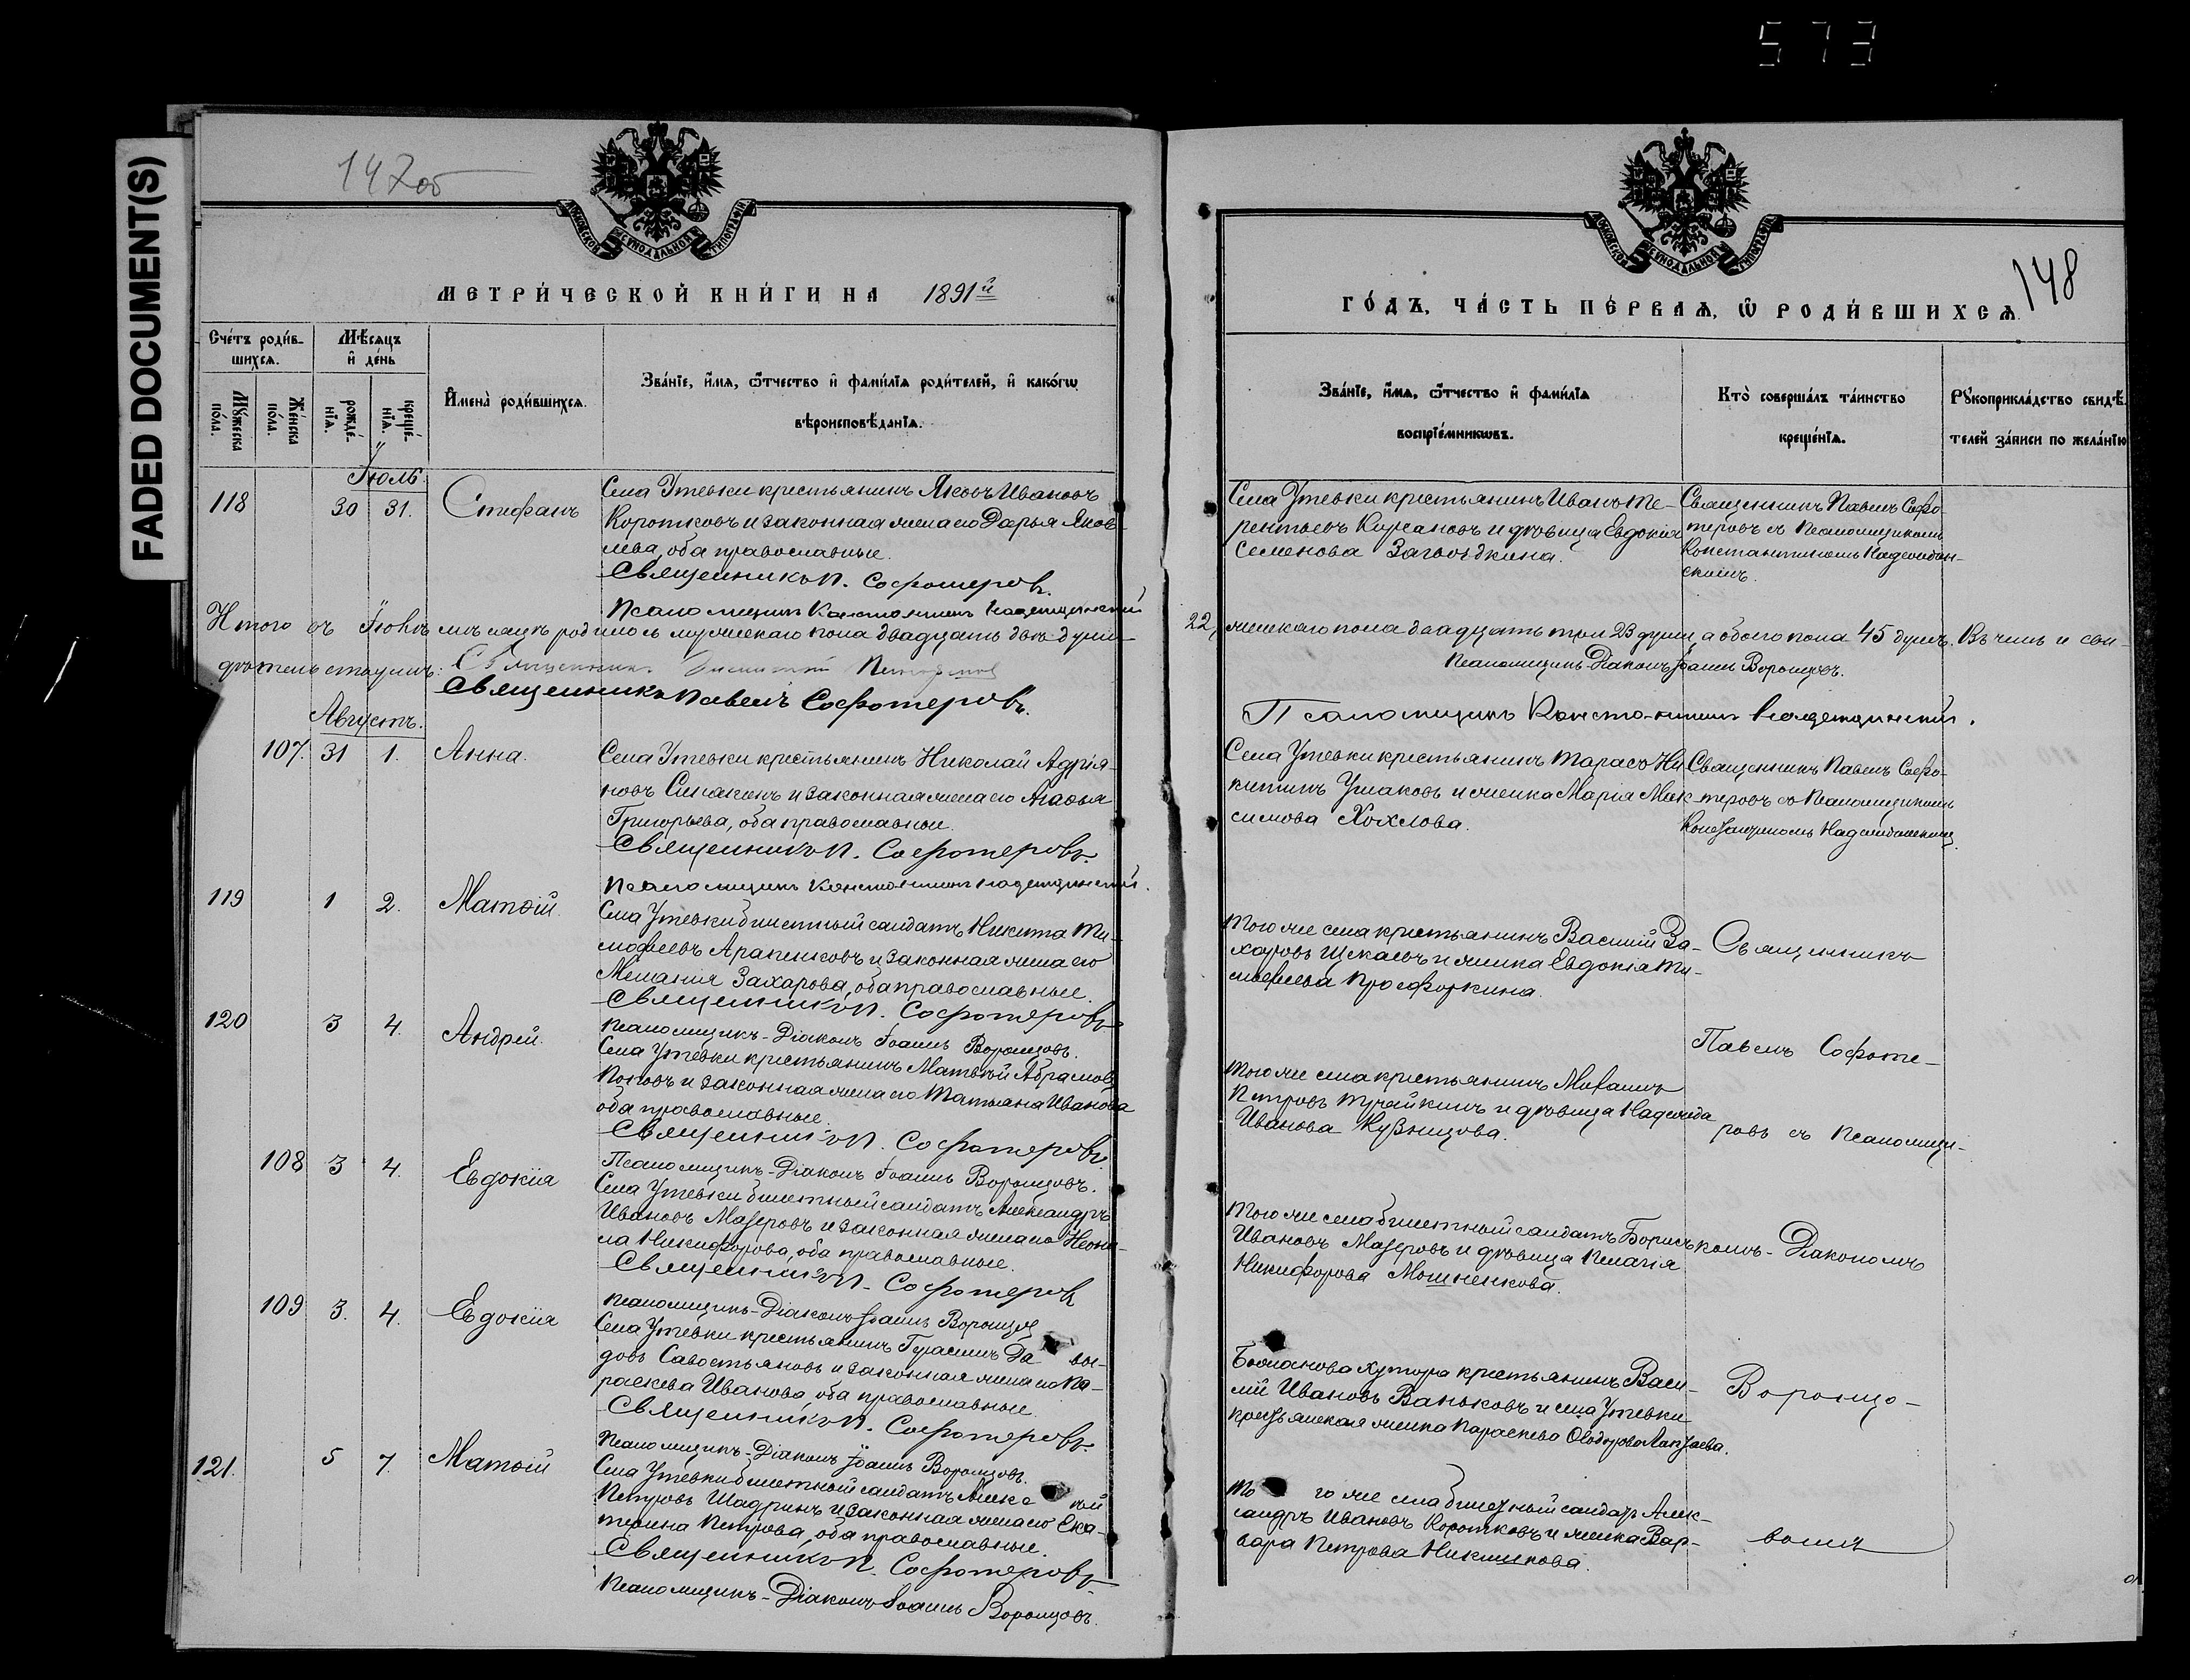 573
FADED DOCUMENT(S)
147об
МОСКОВСКОЙ СѴНОДАЛЬНОЙ ТИПОГРАФІИ
МЕТРИ́ЧЕСКОЙ КНИ́ГИ НА 1891й
Сче́тъ роди́в-
шихся.
Мѣ́сяцъ
и҆ де́нь
Мꙋ́жеска
по́ла.
Же́нска
по́ла.
рожде́-
нїѧ.
креще́-
нїѧ.
И҆мена̀ роди́вшихсѧ.
Зва́нїе, и҆́мѧ, ѻ҆́тчество и҆ фами́лїѧ роди́телей, и҆ како́гѡ
вѣроисповѣ́данїѧ.
Іюль.
118 30 31. Стефанъ
Села Утевки крестьянинъ Яковъ Ивановъ
Коротковъ и законная жена его Дарья Яков-
лева, оба православные.
Священникъ П. Софотеровъ.
Псаломщикъ Константинъ Надеждинскій
Итого въ Іюлѣ мѣсяцѣ родилось мужескаго пола двадцать двѣ души
Священникъ
Священникъ Павелъ Софотеровъ.
Августъ.
107. 31 1. Анна.
Села Утевки крестьянинъ Николай Адрія-
новъ и законная жена его Агаѳья
Григорьева, оба православные.
Священникъ П. Софотеровъ.
Псаломщикъ Константинъ Надеждинскій.
119 1 2. Матѳій.
Села Утевки билетный солдатъ Никита Ти-
моѳеевъ Арапенковъ и законная жена его
Меланія Захарова, оба православные.
Священникъ П. Софотеровъ
Псаломщикъ-Діаконъ Іоаннъ Воронцовъ.
120 3 4. Андрей.
Села Утевки крестьянинъ Матвѣй Абрамовъ
Поповъ и законная жена его Татьяна Иванова
оба православные.
Священникъ П. Софотеровъ.
Псаломщикъ-Діаконъ Іоаннъ Воронцовъ.
108 3 4. Евдокія
Села Утевки билетный солдатъ Александръ
Ивановъ Мазеровъ и законная жена его Неони-
ла Никифорова, оба православные.
Священникъ П. Софотеровъ
Псаломщикъ-Діаконъ Іоаннъ Воронцовъ
109 3. 4. Евдокія
Села Утевки крестьянинъ Герасимъ Да вы-
довъ Савостьяновъ и законная жена его Па-
раскева Иванова, оба православные
Священникъ П. Софотеровъ.
Псаломщикъ-Діаконъ Іоаннъ Воронцовъ.
121. 5 7. Матѳій
Села Утевки билетный солдатъ
Петровъ Шадринъ и законная жена его Ека-
терина Петрова, оба православные.
Священникъ П. Софотеровъ
Псаломщикъ-Діаконъ Іоаннъ Воронцовъ.
148
МОСКОВСКОЙ СѴНОДАЛЬНОЙ ТИПОГРАФІИ
ГО́ДЪ, ЧА́СТЬ ПЕ́РВАѦ, Ѡ҆ РОДИ́ВШИХСѦ.
Зва́нїе, и҆́мѧ, ѻ҆́тчество и҆ фами́лїѧ
воспрїе́мникѡвъ.
Кто̀ соверша́лъ та́инство
креще́нїѧ.
Рꙋкоприкла́дство свидѣ́-
телей за́писи по жела́нїю
Села Утевки крестьянинъ Иванъ Те-
рентьевъ Кирсановъ и дѣвица Евдокія
Семенова Загвоздкина.
Священникъ Павелъ Софо-
теровъ съ Псаломщикомъ
Константиномъ Надеждин-
скимъ.
22, женскаго пола двадцать три 23 души, а обоего пола 45 душъ. Въ чемъ и сви-
дѣтельствуемъ:
Псаломщикъ-Діаконъ Іоаннъ Воронцовъ.
Псаломщикъ Константинъ Надеждинскій.
Села Утевки крестьянинъ Тарасъ Ни-
китинъ Ушаковъ и женка Марія Мак-
симова Хохлова.
Священникъ Павелъ Софо-
теровъ съ Псаломщикомъ
Константиномъ Надеждинскимъ.
Того же села крестьянинъ Василій За-
харовъ Щекаевъ и женка Евдокія Ти-
моѳеева Просфоркина.
Священникъ
Павелъ Софоте-
Того же села крестьянинъ Михаилъ
Петровъ Тучайкинъ и дѣвица Надежда
Иванова Кузнецова.
ровъ съ Псаломщи-
Того же села билетный солдатъ Борисъ
Ивановъ Мазеровъ и дѣвица Пелагія
Никифорова Мошненкова.
комъ-Діакономъ
хутора крестьянинъ Васи-
лій Ивановъ Ваньковъ и села Утевки
крестьянская женка Параскева Ѳеодорова
Воронцо-
То го же села билетный солдатъ Алек-
сандръ Ивановъ Коротковъ и женка Вар-
вара Петрова Никишкова.
вымъ